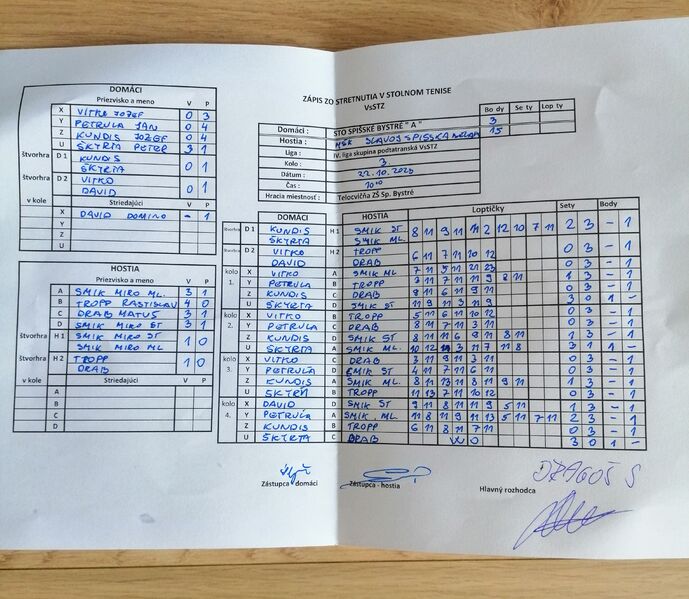 DOMÁCI
Priezvisko a meno V P
X VITKO JOZEF 0 3
Y PETRULA JÁN 0 4
Z KUNDIS JOZEF 0 4
U ŠKYRTA PETER 3 1
štvorhra D 1 KUNDIS ŠKYRTA 0 1
štvorhra D 2 VITKO DAVID 0 1
v kole Striedajúci
X DAVID DOMINO - 1
Y
Z
U
HOSTIA
Priezvisko a meno V P
A SMIK MIRO ML. 3 1
B TROPP RASTISLAV 4 0
C DRAB MATÚŠ 3 1
D SMIK MIRO ST 3 1
štvorhra H 1 SMIK MIRO ST SMIK MIRO ML 1 0
štvorhra H 2 TROPP DRAB 1 0
v kole Striedajúci
A
B
C
D
ZÁPIS ZO STRETNUTIA V STOLNOM TENISE
VsSTZ
Bo dy Se ty Lop ty
Domáci : STO SPIŠSKÉ BYSTRÉ " A " 3
Hostia : MŠK SLAVOJ SPIŠSKÁ 15
Liga : IV. liga skupina podtatranská VsSTZ
Kolo : 3.
Dátum : 22.10.2023
Čas : 10 00
Hracia miestnosť : Telocvičňa ZŠ Sp. Bystré
DOMÁCI HOSTIA Loptičky Sety Body
štvorhra D 1 KUNDIS ŠKYRTA H 1 SMIK ST SMIK ML. 8 11 9 11 11 2 12 10 7 11 2 3 - 1
štvorhra D 2 VITKO DAVID H 2 TROPP DRAB 6 11 7 11 10 12 0 3 - 1
kolo 1. X VITKO A SMIK ML 7 11 21 23 0 3 - 1
Y PETRULA B TROPP 11 7 11 11 9 8 11 1 3 - 1
Z KUNDIS C DRAB 8 11 9 11 9 11 0 3 - 1
U ŠKYRTA D SMIK ST 11 9 11 3 11 9 3 0 1 -
kolo 2. X VITKO B TROPP 5 11 6 11 10 12 0 3 - 1
Y PETRULA C DRAB 8 11 7 11 3 11 0 3 - 1
Z KUNDIS D SMIK ST 8 11 11 6 9 11 8 11 1 3 - 1
U ŠKYRTA A SMIK ML. 10 12 11 3 11 7 11 8 3 1 1 -
kolo 3. X VITKO C DRAB 3 11 9 11 3 11 0 3 - 1
Y PETRULA D SMIK ST 4 11 7 11 6 11 0 3 - 1
Z KUNDIS A SMIK ML 8 11 13 11 8 11 9 11 1 3 - 1
U ŠKYRTA B TROPP 11 13 7 11 10 12 0 3 - 1
kolo 4. X DAVID D SMIK ST 9 11 8 11 11 9 5 11 1 3 - 1
Y PETRULA A SMIK ML 11 8 11 9 11 13 5 11 7 11 2 3 - 1
Z KUNDIS B TROPP 6 11 8 11 7 11 0 3 - 1
U ŠKYRTA C DRAB W O 3 0 1 -
Zástupca domáci Zástupca - hostia Hlavný rozhodca
DRAGOŠ S